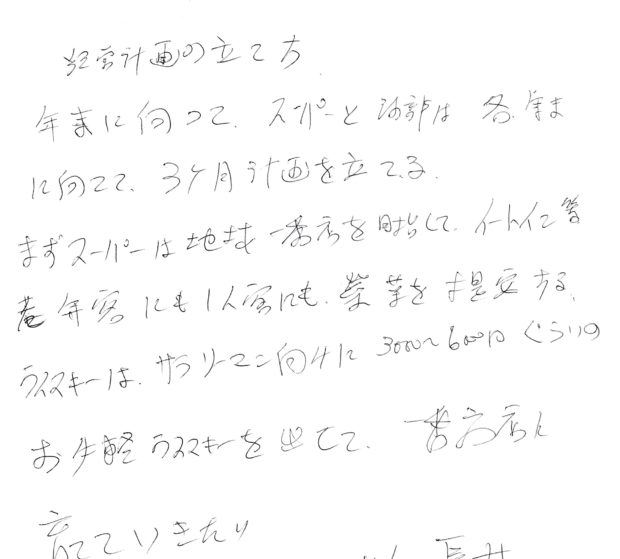 経営計画の立て方
年末に向って、スーパーと 酒部は 各、年末
に向って、3ケ月計画を立てる。
まずスーパーは地域一番店を目指して、イートイン等
若年客にも1人客にも、営業を提案する、
ウイスキーは、サラリーマン向けに 3000〜6000円ぐらいの
お手軽ウイスキーを出して、一番店に
育てていきたい
長井